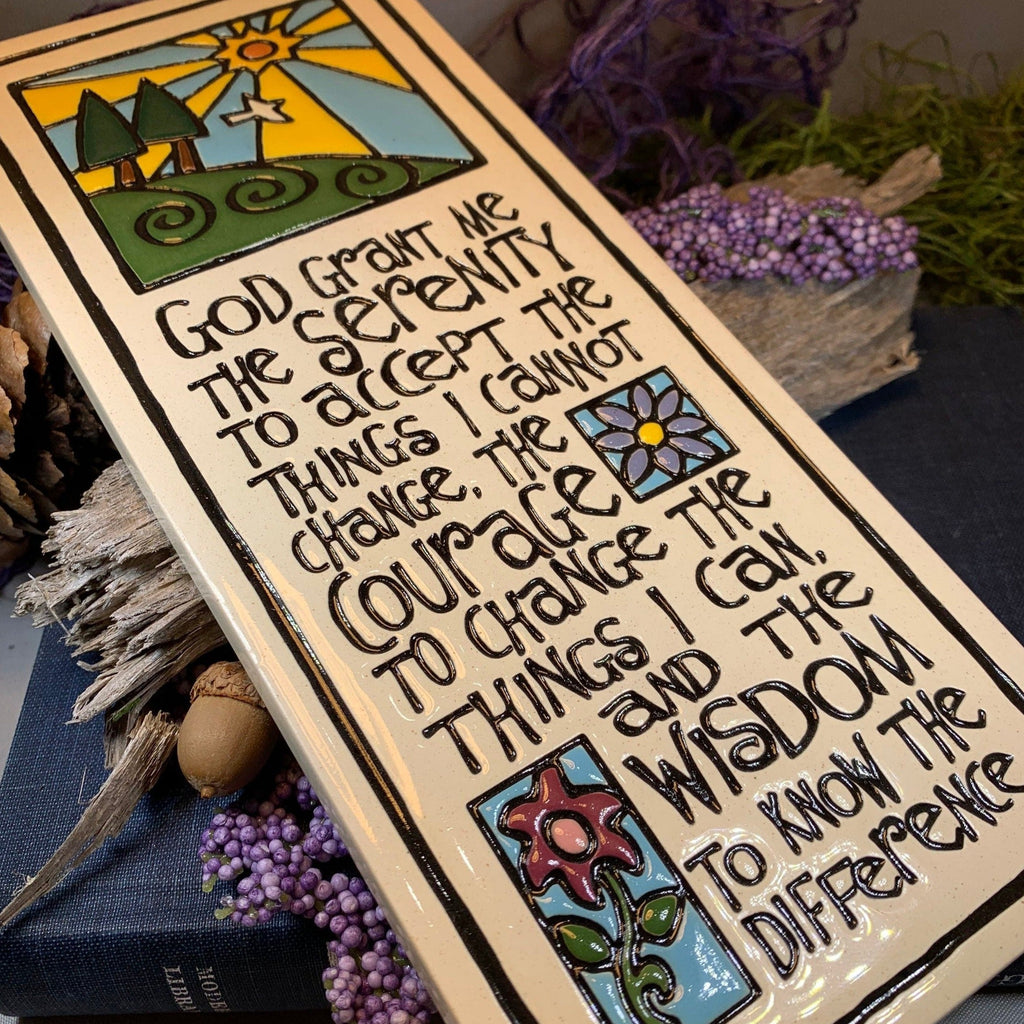 GOD GRANT ME
THE SERENITY
TO ACCEPT THE
THINGS I CANNOT
CHANGE, THE
COURAGE
TO CHANGE THE
THINGS I CAN,
AND THE
WISDOM
TO KNOW THE
DIFFERENCE
MODERN
LIBRARY